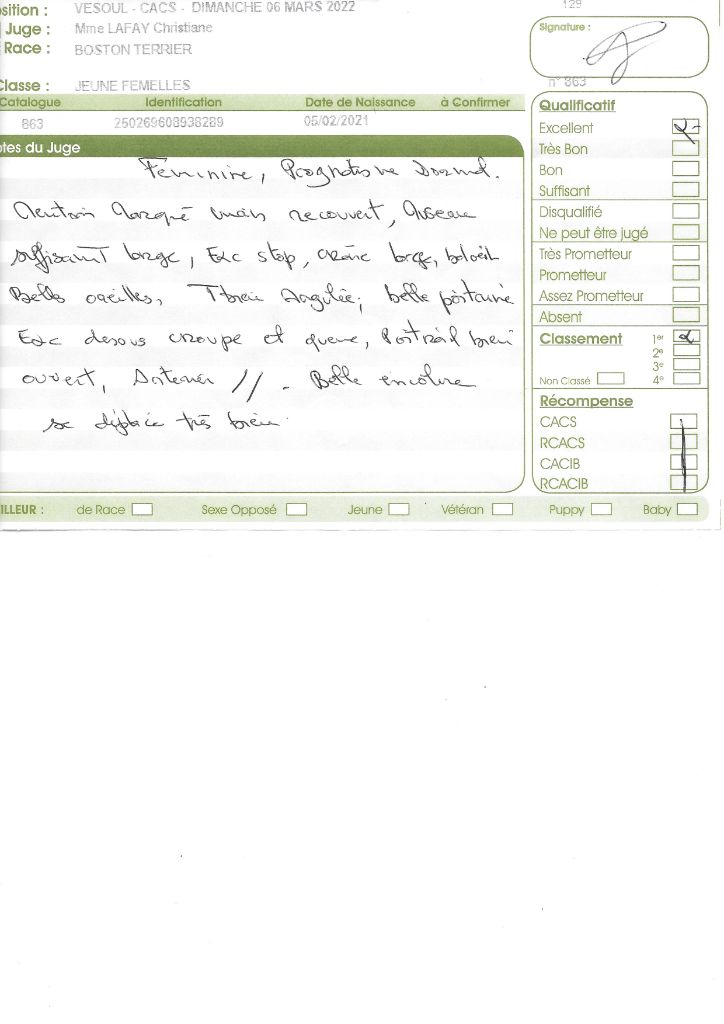 sition : VESOUL - CACS - DIMANCHE 06 MARS 2022
Juge : Mme LAFAY Christiane
Race : BOSTON TERRIER
Classe : JEUNE FEMELLES
129
Signature :
n° 863
Catalogue Identification Date de Naissance à Confirmer
863 250269608938289 05/02/2021
tes du Juge
Féminine, Prognathisme Normal.
Menton marqué mais recouvert, Museau
suffisant large, Exc stop, crâne large, bel oeil
Belles oreilles, T bien Angulée, belle poitrine
Exc dessus croupe et queue, Poitrail bien
ouvert, Antérieur // - Belle encolure
se déplace très bien
Qualificatif
Excellent X
Très Bon
Bon
Suffisant
Disqualifié
Ne peut être jugé
Très Prometteur
Prometteur
Assez Prometteur
Absent
Classement 1er
2e
3e
Non Classé 4e
Récompense
CACS
RCACS
CACIB
RCACIB
ILLEUR : de Race Sexe Opposé Jeune Vétéran Puppy Baby